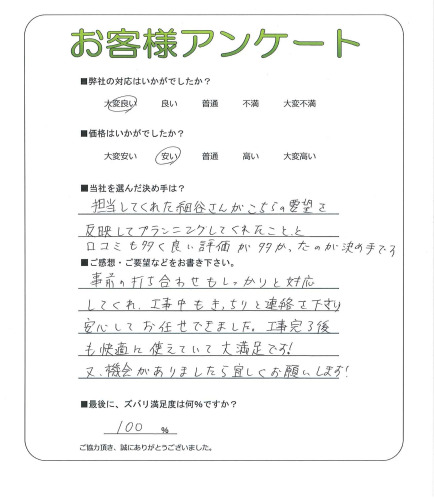 お客様アンケート
■弊社の対応はいかがでしたか？
大変良い 良い 普通 不満 大変不満
■価格はいかがでしたか？
大変安い 安い 普通 高い 大変高い
■当社を選んだ決め手は？
担当してくれた細谷さんがこちらの要望を
反映してプランニングしてくれたこと、と
口コミも多く良い評価が多かったのが決め手です
■ご感想・ご要望などをお書き下さい。
事前の打ち合わせもしっかりと対応
してくれ、工事中もきっちりと連絡を下さり
安心してお任せできました。工事完了後
も快適に使えていて大満足です!
又、機会がありましたら宜しくお願いします!
■最後に、ズバリ満足度は何%ですか？
100 %
ご協力頂き、誠にありがとうございました。